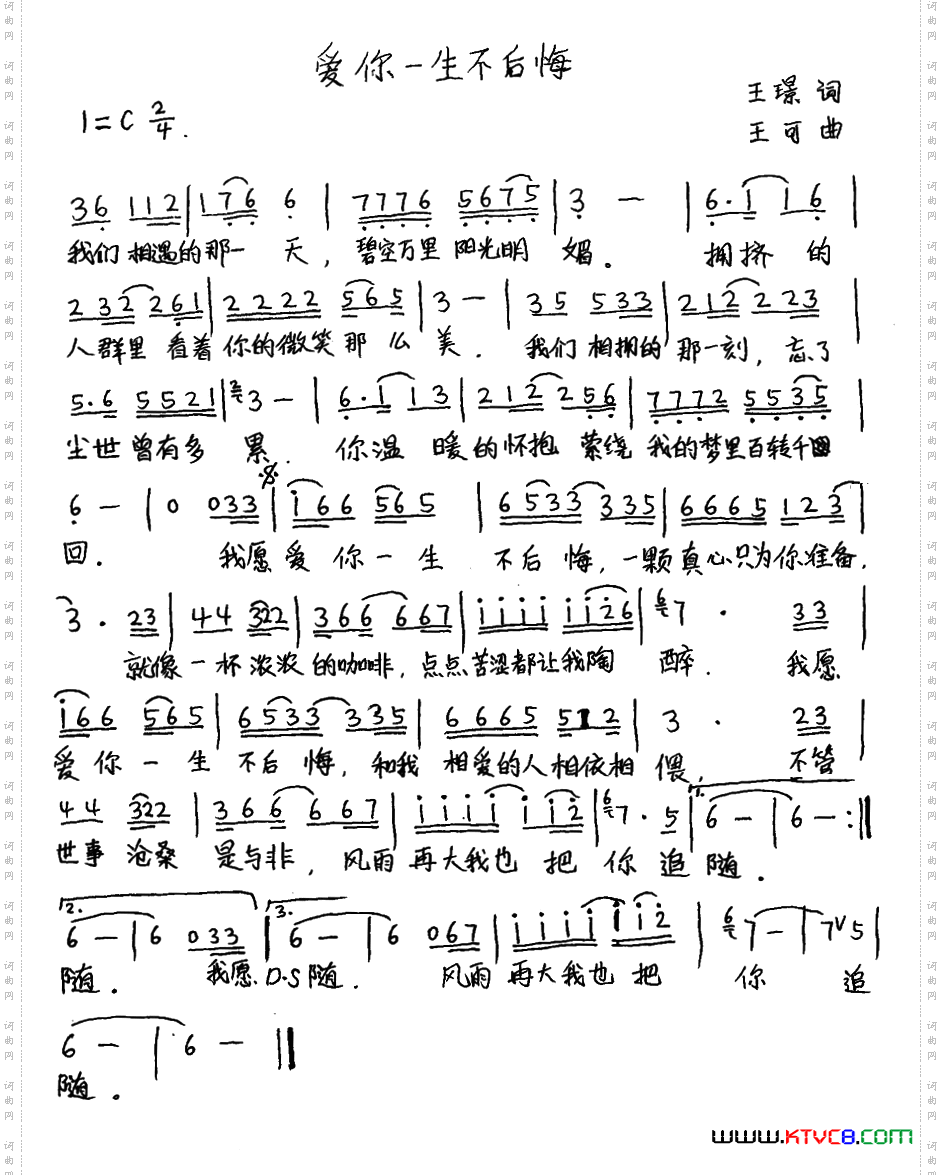 爱你一生不后悔
王璟 词
1=C 2/4.
王可 曲
36 112 | 176 6 | 7776 5675 | 3 — | 6.1 16 |
我们相遇的那一天，碧空万里阳光明媚。拥挤的
232 261 | 2222 565 | 3 — | 35 533 | 212 223 |
人群里看着你的微笑那么美. 我们相拥的那一刻，忘了
5.6 5521 | 3 — | 6.1 13 | 212 256 | 7772 5535 |
尘世曾有多累. 你温暖的怀抱萦绕我的梦里百转千回
6 — | 0 033 | i66 565 | 6533 335 | 6665 123 |
回. 我愿爱你一生不后悔，一颗真心只为你准备.
3 . 23 | 44 322 | 366 667 | iiii ii26 | 7 . 33 |
就像一杯浓浓的咖啡，点点苦涩都让我陶醉. 我愿
i66 565 | 6533 335 | 6665 512 | 3 . 23 |
爱你一生不后悔，和我相爱的人相依相偎，不管
44 322 | 366 667 | iiii ii2 | 7 . 5 | 1. 6 — | 6 — :||
世事沧桑是与非，风雨再大我也把你追随.
2. 6 — | 6 033 | 3. 6 — | 6 067 | iiii ii2 | 7 — | 7∨5 |
随. 我愿 D.S 随. 风雨再大我也把你追
6 — | 6 — ||
随.
www.KTVC8.com
词曲网